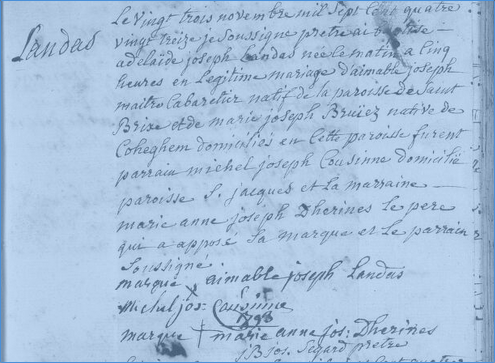 Landas
Le vingt trois novembre mil sept cent quatre
vingt treize je soussigné pretre ai baptisé
adelaide joseph Landas née le matin a cinq
heures en legitime mariage d'aimable joseph
maitre Cabaretier natif de la paroisse de saint
Brixe et de marie joseph Bruiez native de
Coheghem domiciliés en cette paroisse furent
parrain michel joseph Cousinne domicilié
paroisse S. jacques et la marraine
marie anne joseph Dherines le pere
qui a apposé sa marque et le parrain
soussigné.
marque aimable joseph Landas
Michel jos: Cousinne
1793
marque marie anne jos: Dherines
jos. segard pretre